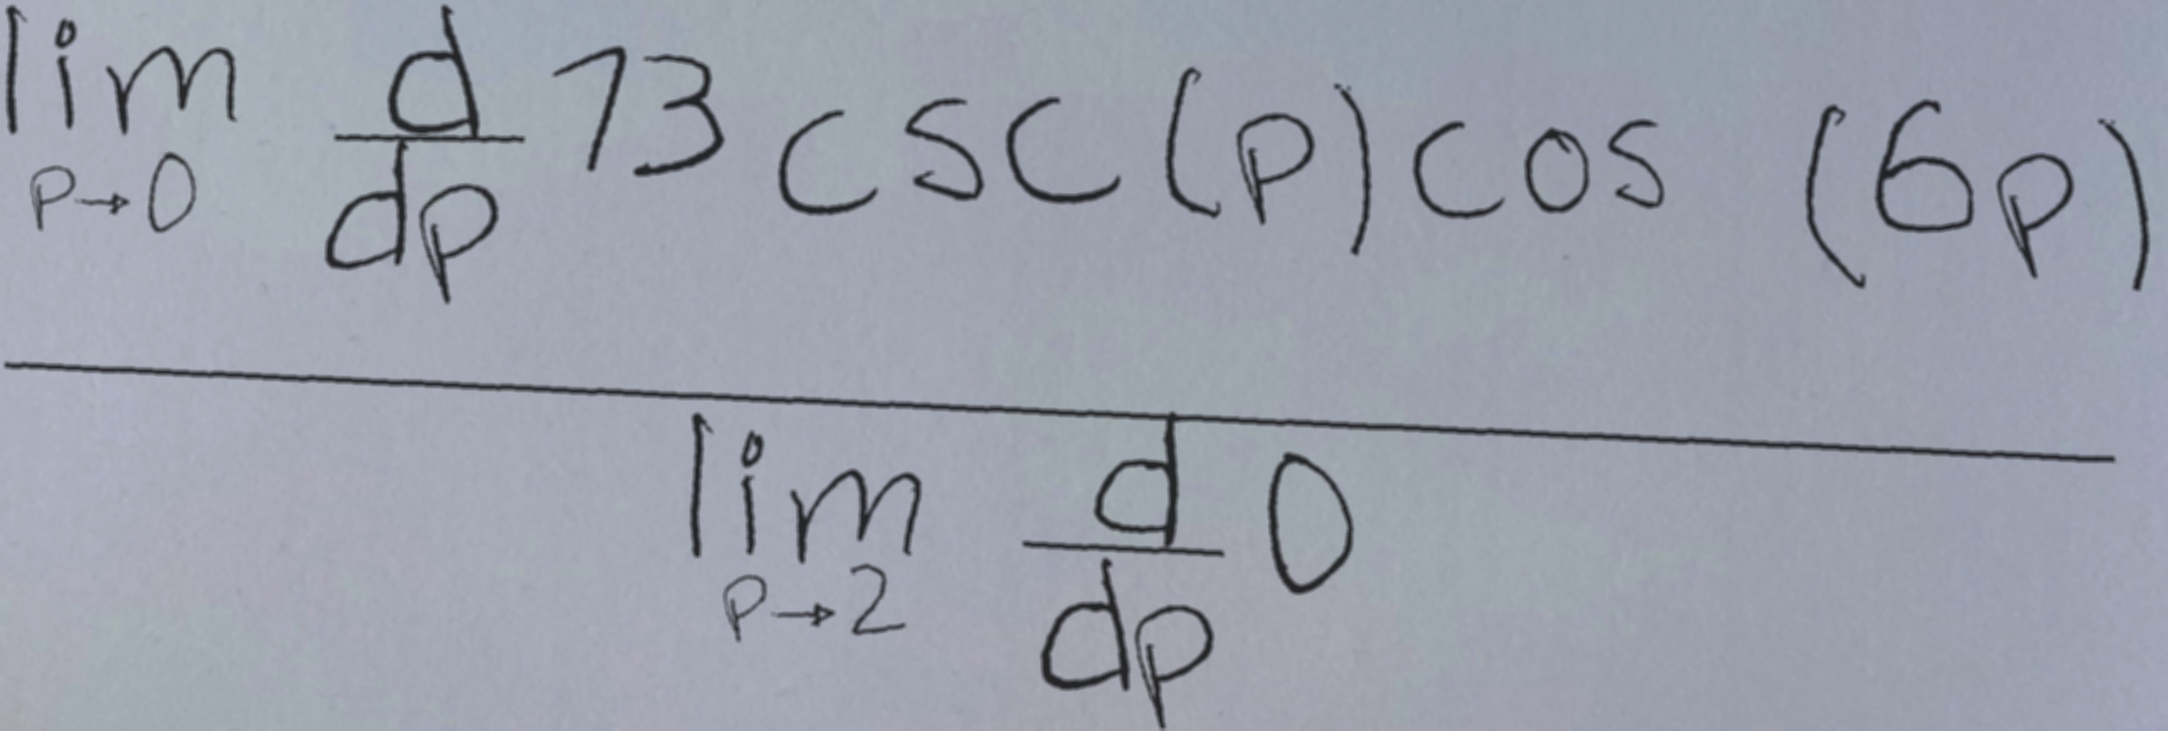 \frac{\lim_{p \to 0} \frac{d}{dp} 73 \csc(p) \cos(6p)}{\lim_{p \to 2} \frac{d}{dp} 0}